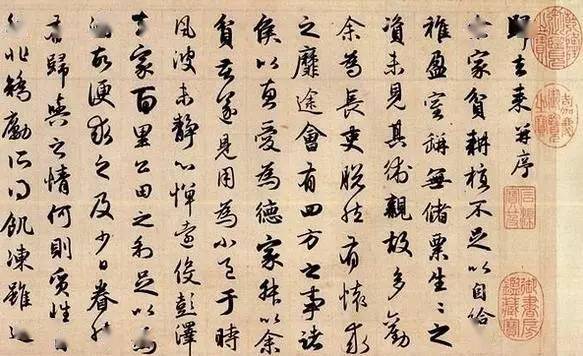 歸去来并序
余家貧耕植不足以自給
稚盈室缾無儲粟生生之
資未見其術親故多勸
余為長吏脱然有懷求
之靡途會有四方之事諸
侯以惠愛為德家叔以余
貧苦遂見用為小邑于時
風波未静心憚遠役彭澤
去家百里公田之利足以為
故便求之及少日眷然
有歸歟之情何則質性
非矯勵所得飢凍雖
嘉慶御覽之寶
石渠寶笈
御書房鑑藏寶